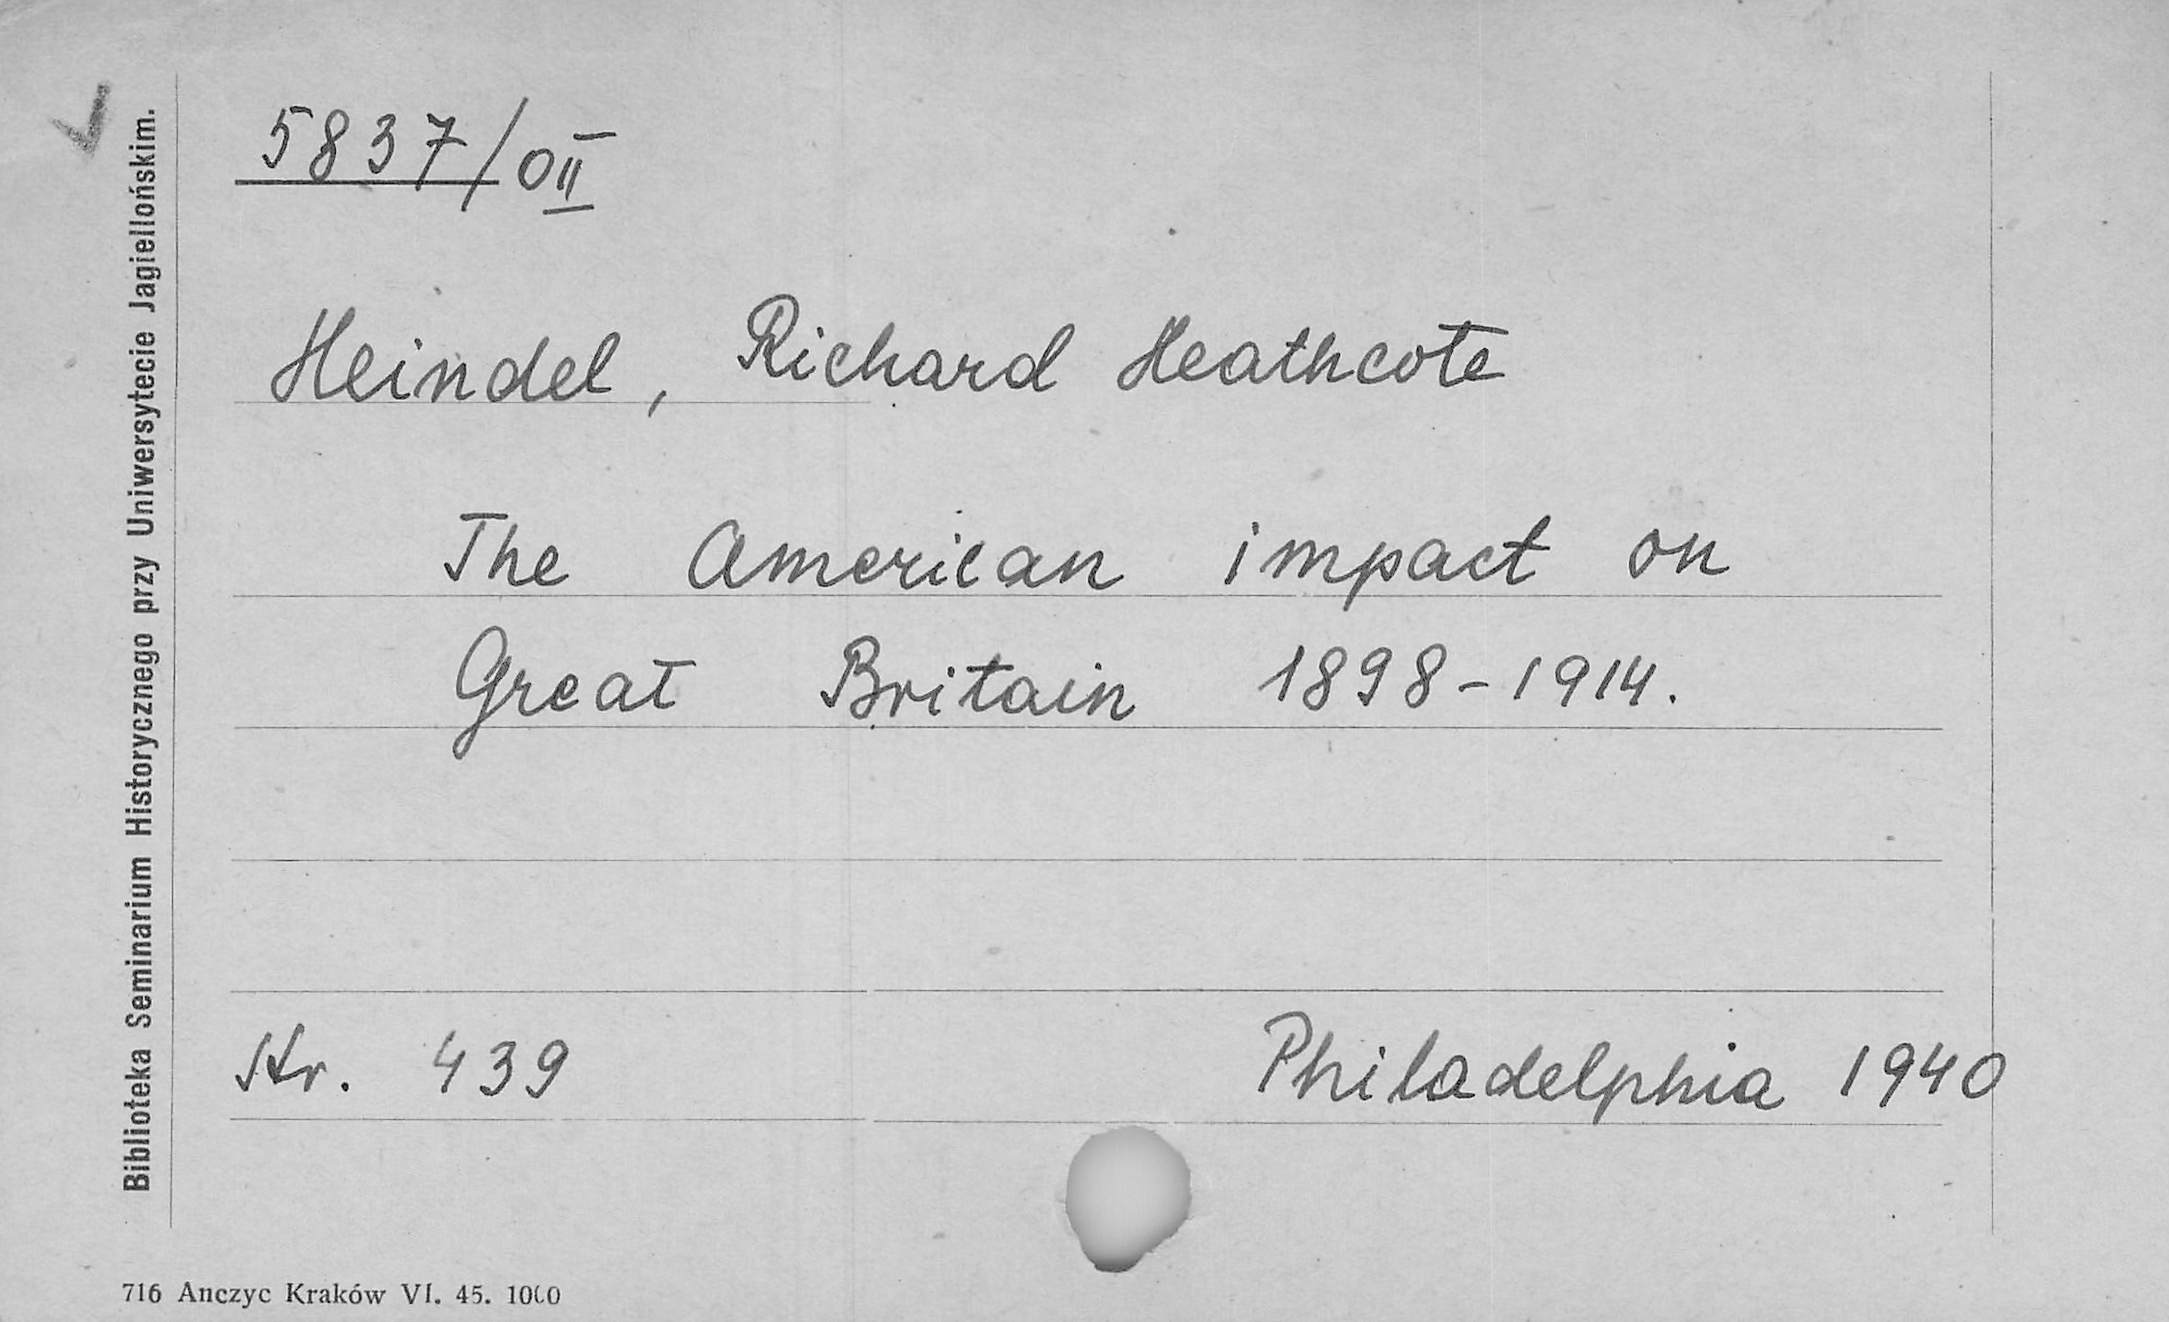 5837/OII
Heindel, Richard Heathcote
The American impact on
Great Britain 1898-1914.
Str. 439
Philadelphia 1940
Biblioteka Seminarium Historycznego przy Uniwersytecie Jagiellońskim.
716 Anczyc Kraków VI. 45. 1000